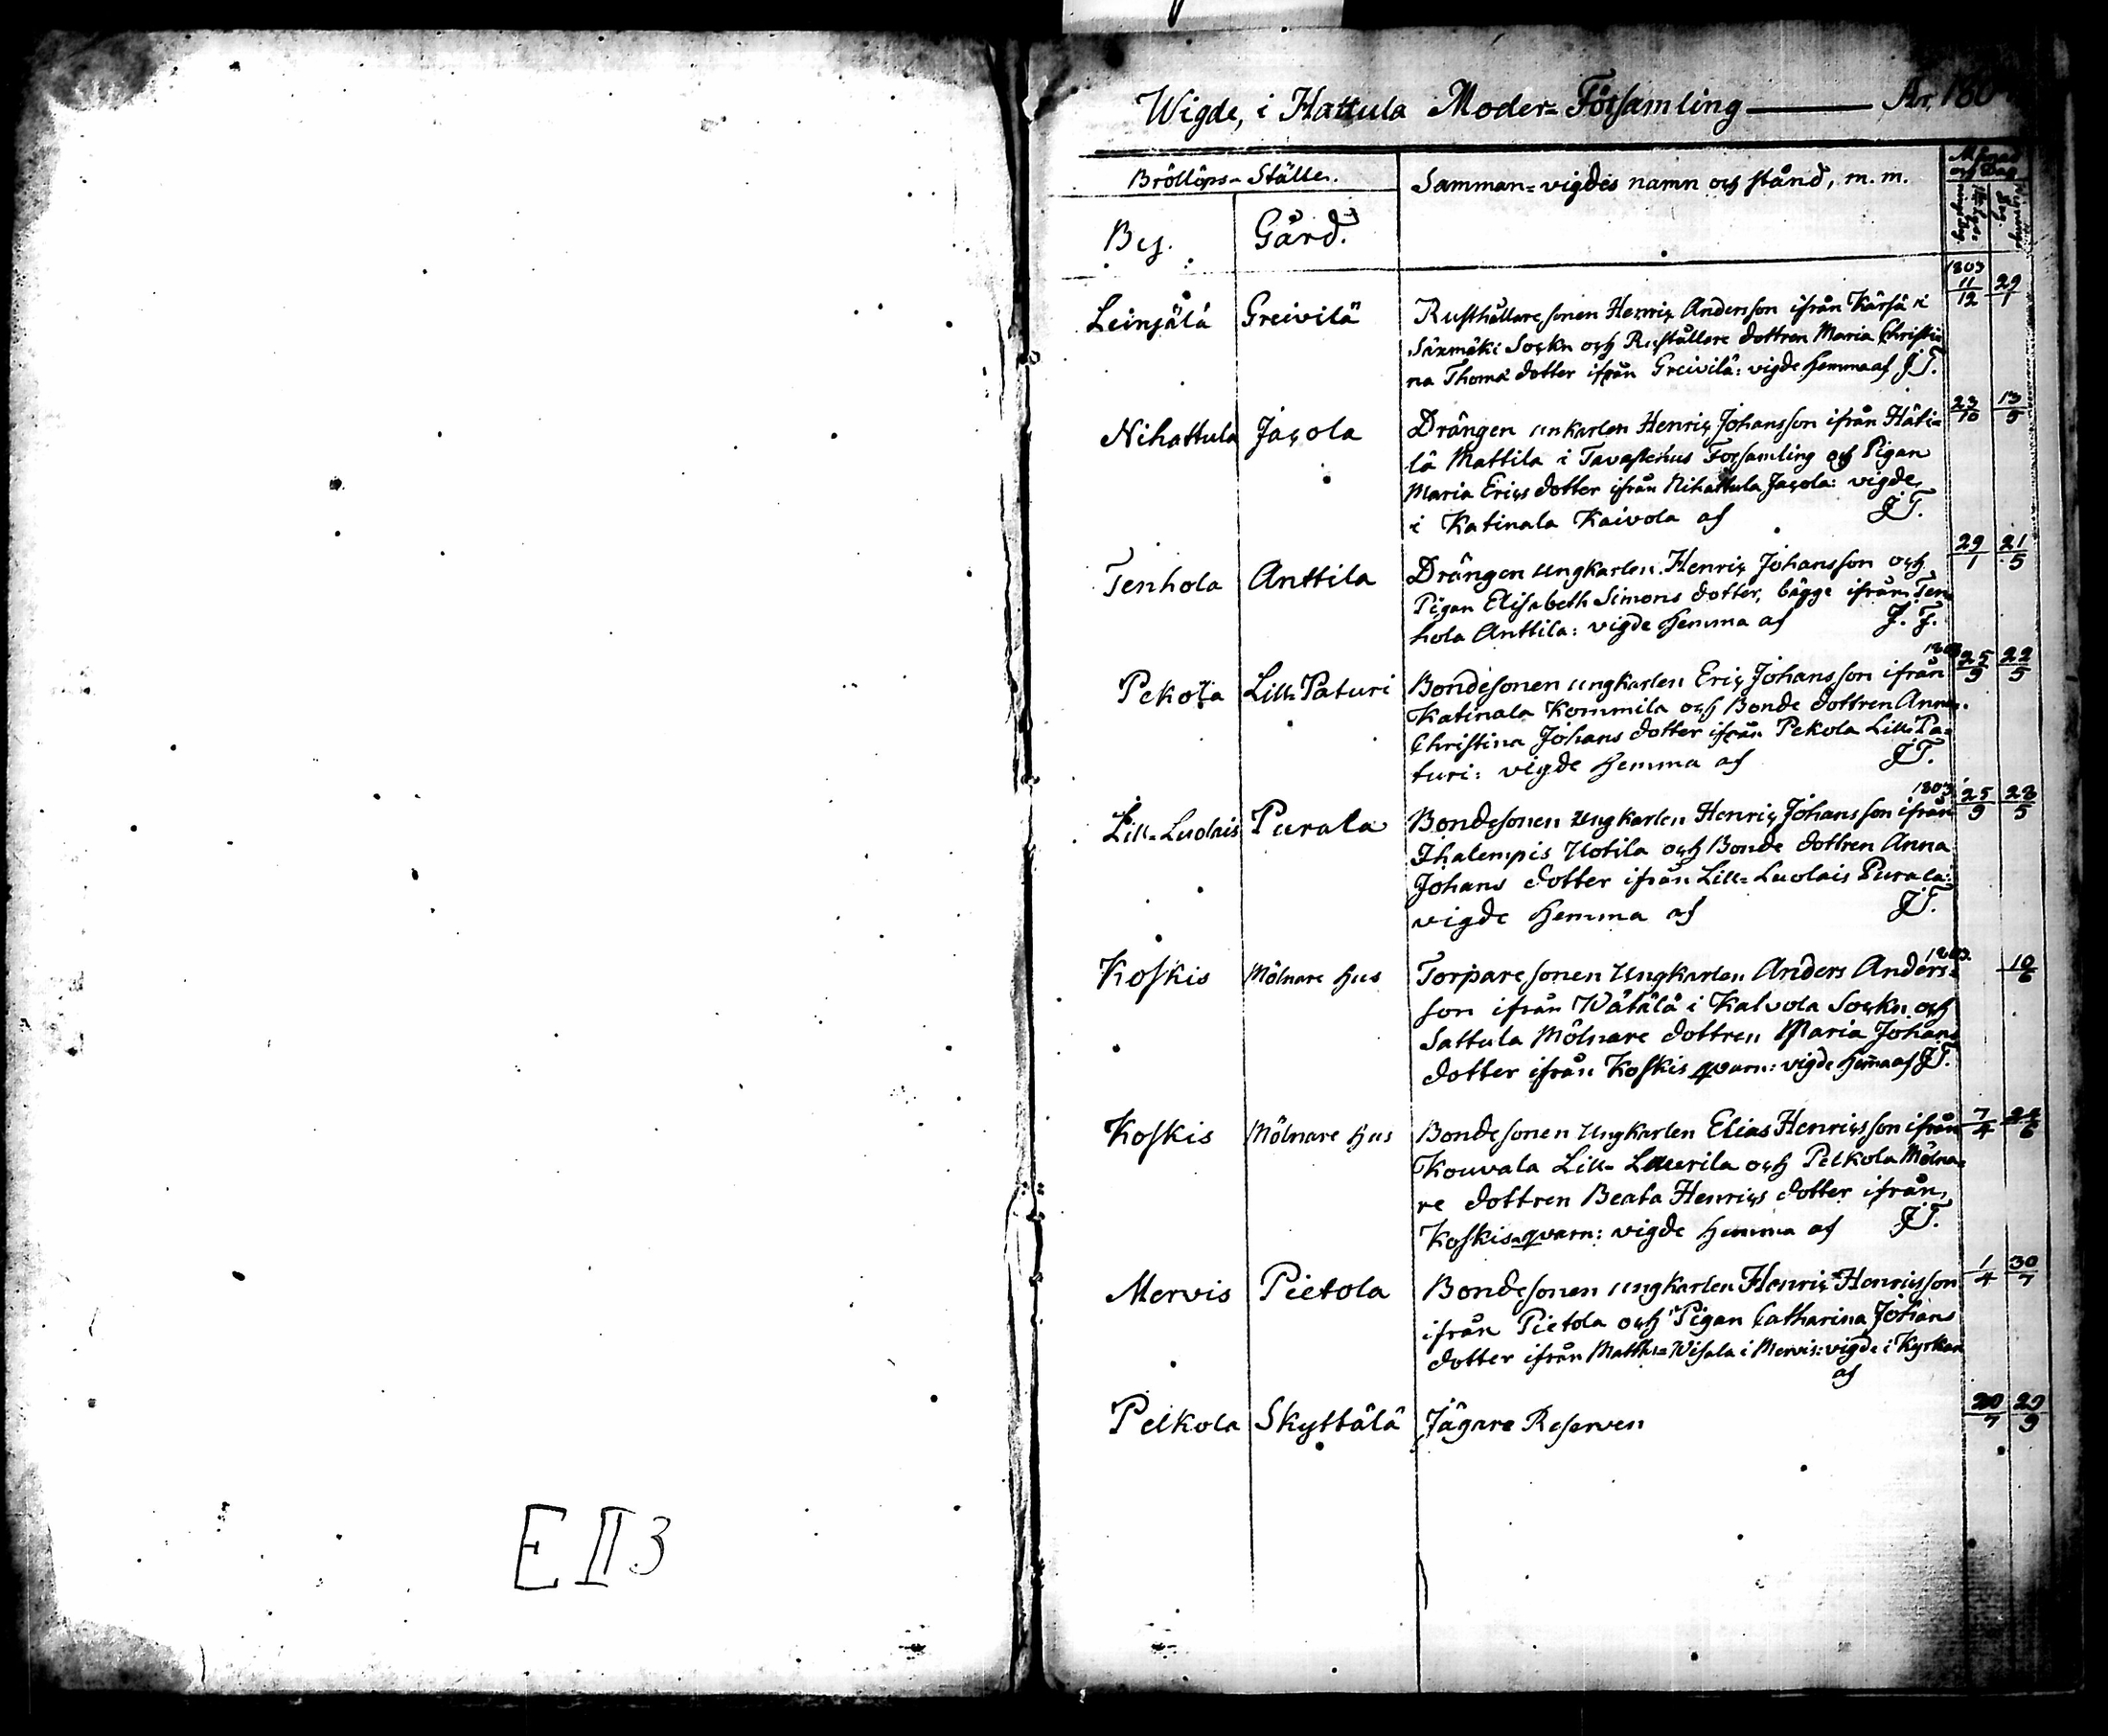 E II 3
Wigde, i Hattula Moder=Församling — År, 180
Bröllops-Ställe.
Samman=vigdes namn och stånd, m. m.
Månad och Dag
By.
Gård.
Leinjälä Greivilä
Rusthållare sonen Henric Andersson ifrån Kärjä i
Säxmäki Sockn och Rusthållare dottren Maria Christi=
na Thomæ dotter ifrån Greivilä: vigde hemma af J T.
1803 11/12 29/1
Nihattula Jacola
Drängen unkarlen Henric Johansson ifrån Häti=
lä Mattila i Tavastehus Församling och Pigan
Maria Erics dotter ifrån Nihattula Jacola: vigde
i Katinala Kaivola af J T.
23/10 13/5
Tenhola Anttila
Drängen ungkarlen Henric Johansson och
Pigan Elisabeth Simons dotter, bägge ifrån Ten
hola Anttila: vigde hemma af J. T.
29/1 21/5
Pekola Lill-Paturi
Bondesonen ungkarlen Eric Johansson ifrån
Katinala Kommila och Bonde dottren Anna
Christina Johans dotter ifrån Pekola Lill-Pa=
turi: vigde hemma af J T.
1803 25/9 22/5
Lill-Luolais Purala
Bondesonen Ungkarlen Henric Johansson ifrån
Ihalempis Uotila och Bonde dottren Anna
Johans dotter ifrån Lill-Luolais Purala:
vigde hemma af J T.
1803 25/9 28/5
Koskis Mölnare hus
Torpare sonen Ungkarlen Anders Anders=
son ifrån Wätälä i Kalvola Sockn och
Sattula Mölnare dottren Maria Johans
dotter ifrån Koskis qvarn: vigde hemma af J T.
1803 10/6
Koskis Mölnare hus
Bondesonen Ungkarlen Elias Henricsson ifrån
Kouvala Lill-Laurila och Pelkola Mölna=
re dottren Beata Henrics dotter ifrån
Koskis-qvarn: vigde hemma af J T.
7/4 24/6
Mervis Pietola
Bondesonen ungkarlen Henric Henricsson
ifrån Pietola och Pigan Catharina Johans
dotter ifrån Matts-Wisala i Mervis: vigde i Kyrkan
af
1/4 30/7
Pelkola Skyttälä
Jägare Reserven
20/7 29/9